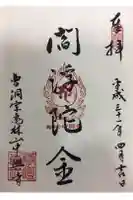 奉拝
平成三十一年四月吉日
閻浮陀金
曹洞宗高林山中興寺